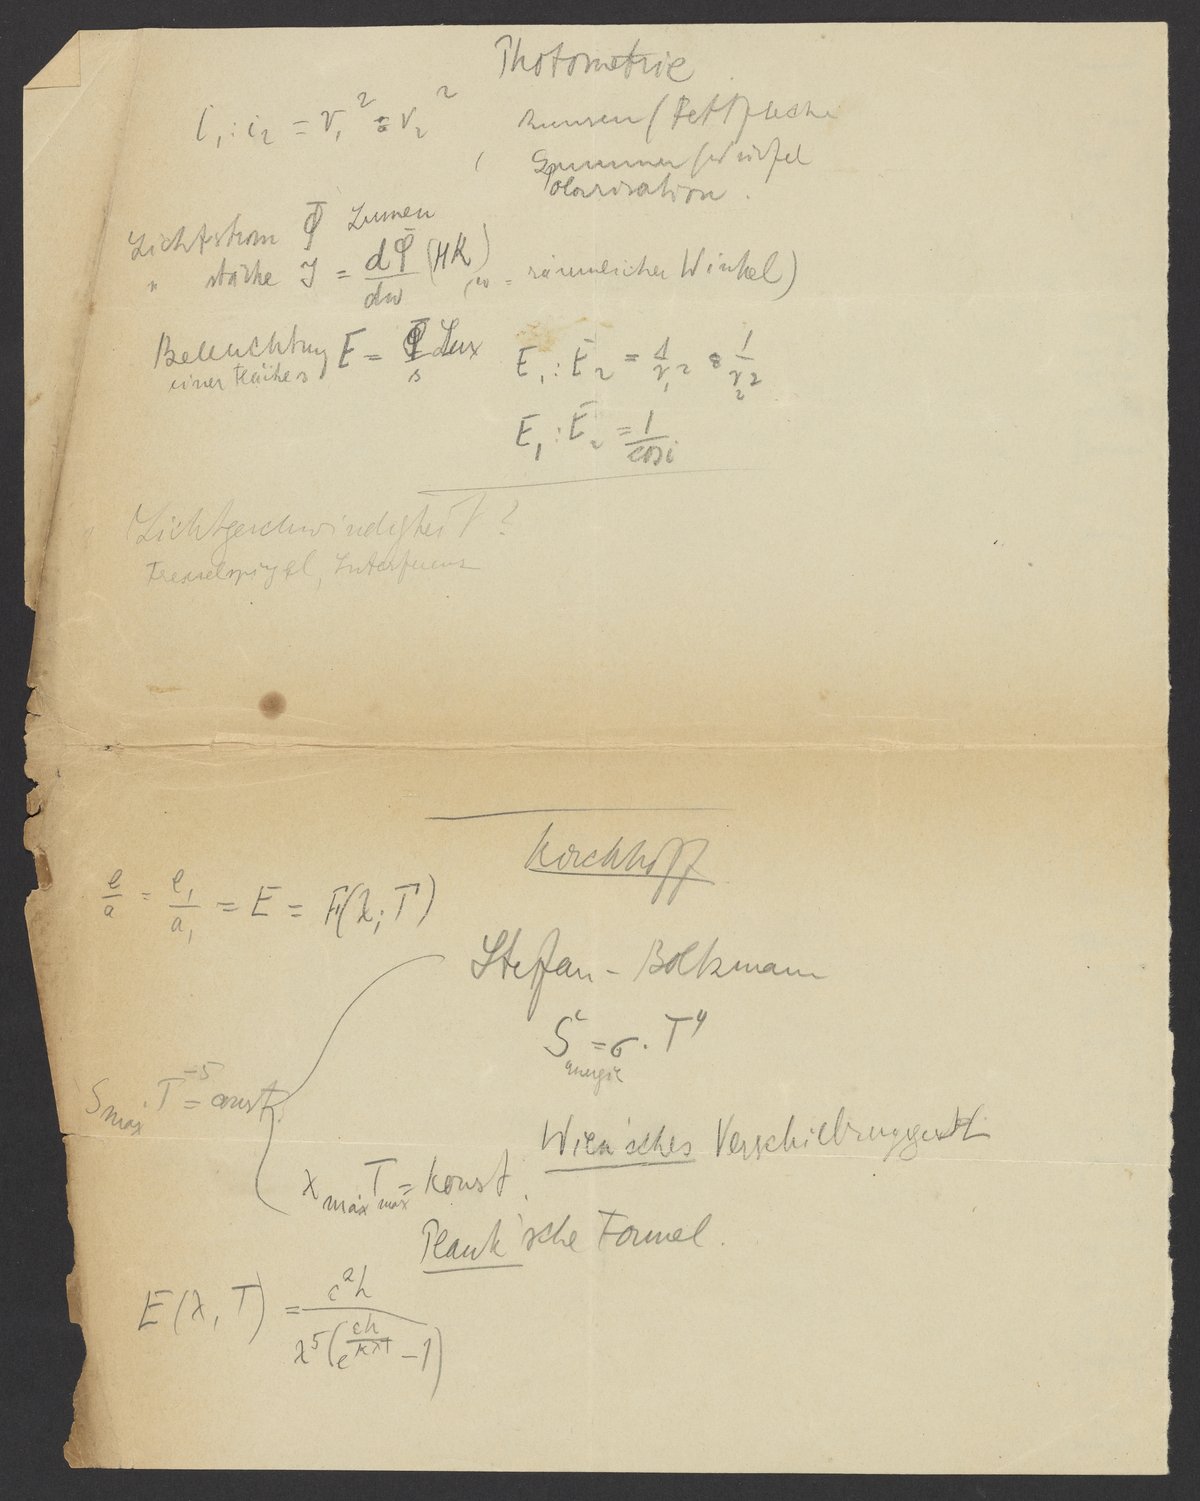 Photometrie
i₁ : i₂ = r₁² : r₂²
Bunsen (Fettfleche
Würfel
Polarisation.
Lichtstrom Φ Lumen
" stärke J = dΦ/dω (HK) (ω = räumlicher Winkel)
Beleuchtung E = Φ/s Lux
einer Fläche s
E₁ : E₂ = 1/r₁² : 1/r₂²
E₁ : E₂ = 1/cos i
Lichtgeschwindigkeit ?
Fresnelspiegel, Interferenz
Kirchhoff
e/a = e₁/a₁ = E = F(λ; T)
Stefan - Boltzmann
S = σ · T⁴
energie
S max · T⁻⁵ = const.
Wien'sches Verschiebungsgesetz
λ max T max = konst.
Plank'sche Formel.
E(λ, T) = c²h / λ⁵(e^(ch/kλT) − 1)